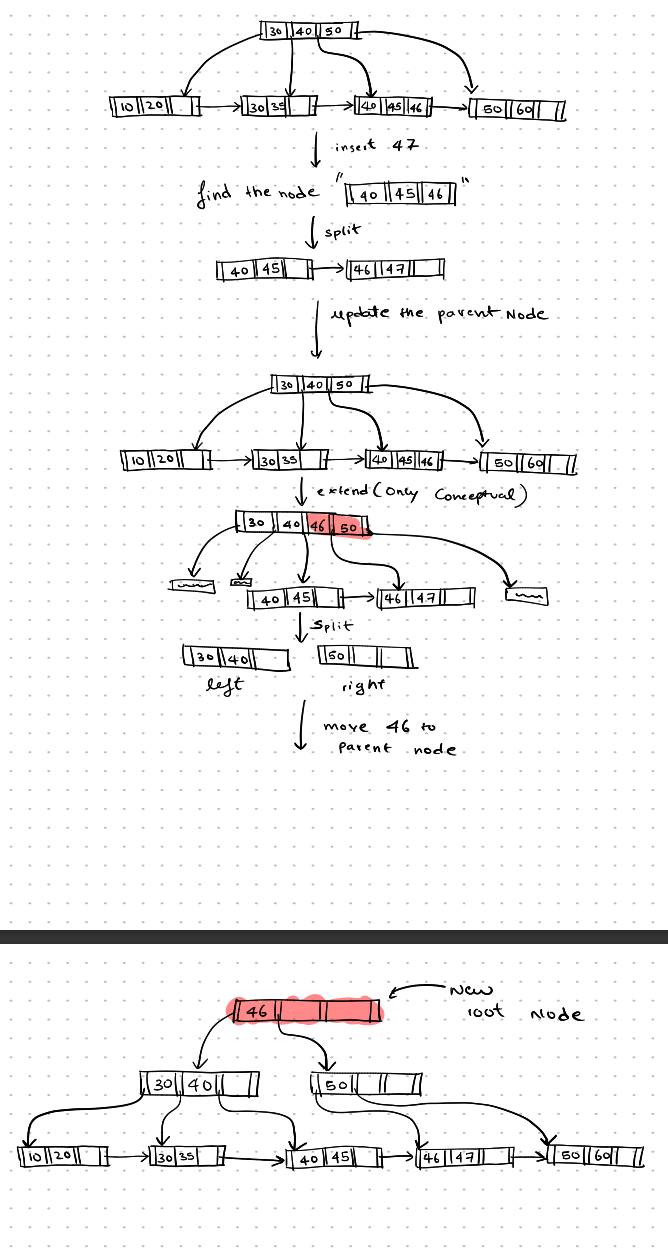 30 40 50
10 20 30 35 40 45 46 50 60
insert 47
find the node " 40 45 46 "
split
40 45 46 47
update the parent Node
30 40 50
10 20 30 35 40 45 46 50 60
extend (Only Conceptual)
30 40 46 50
40 45 46 47
Split
30 40 50
left right
move 46 to
parent node
New
46 root Node
30 40 50
10 20 30 35 40 45 46 47 50 60